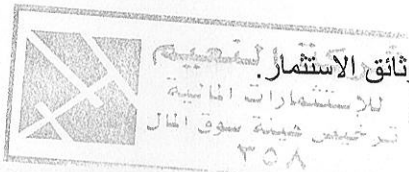 شركة النعيم
وثائق الاستثمار.
للإستثمارات المالية
ترخيص هيئة سوق المال
٣٥٨